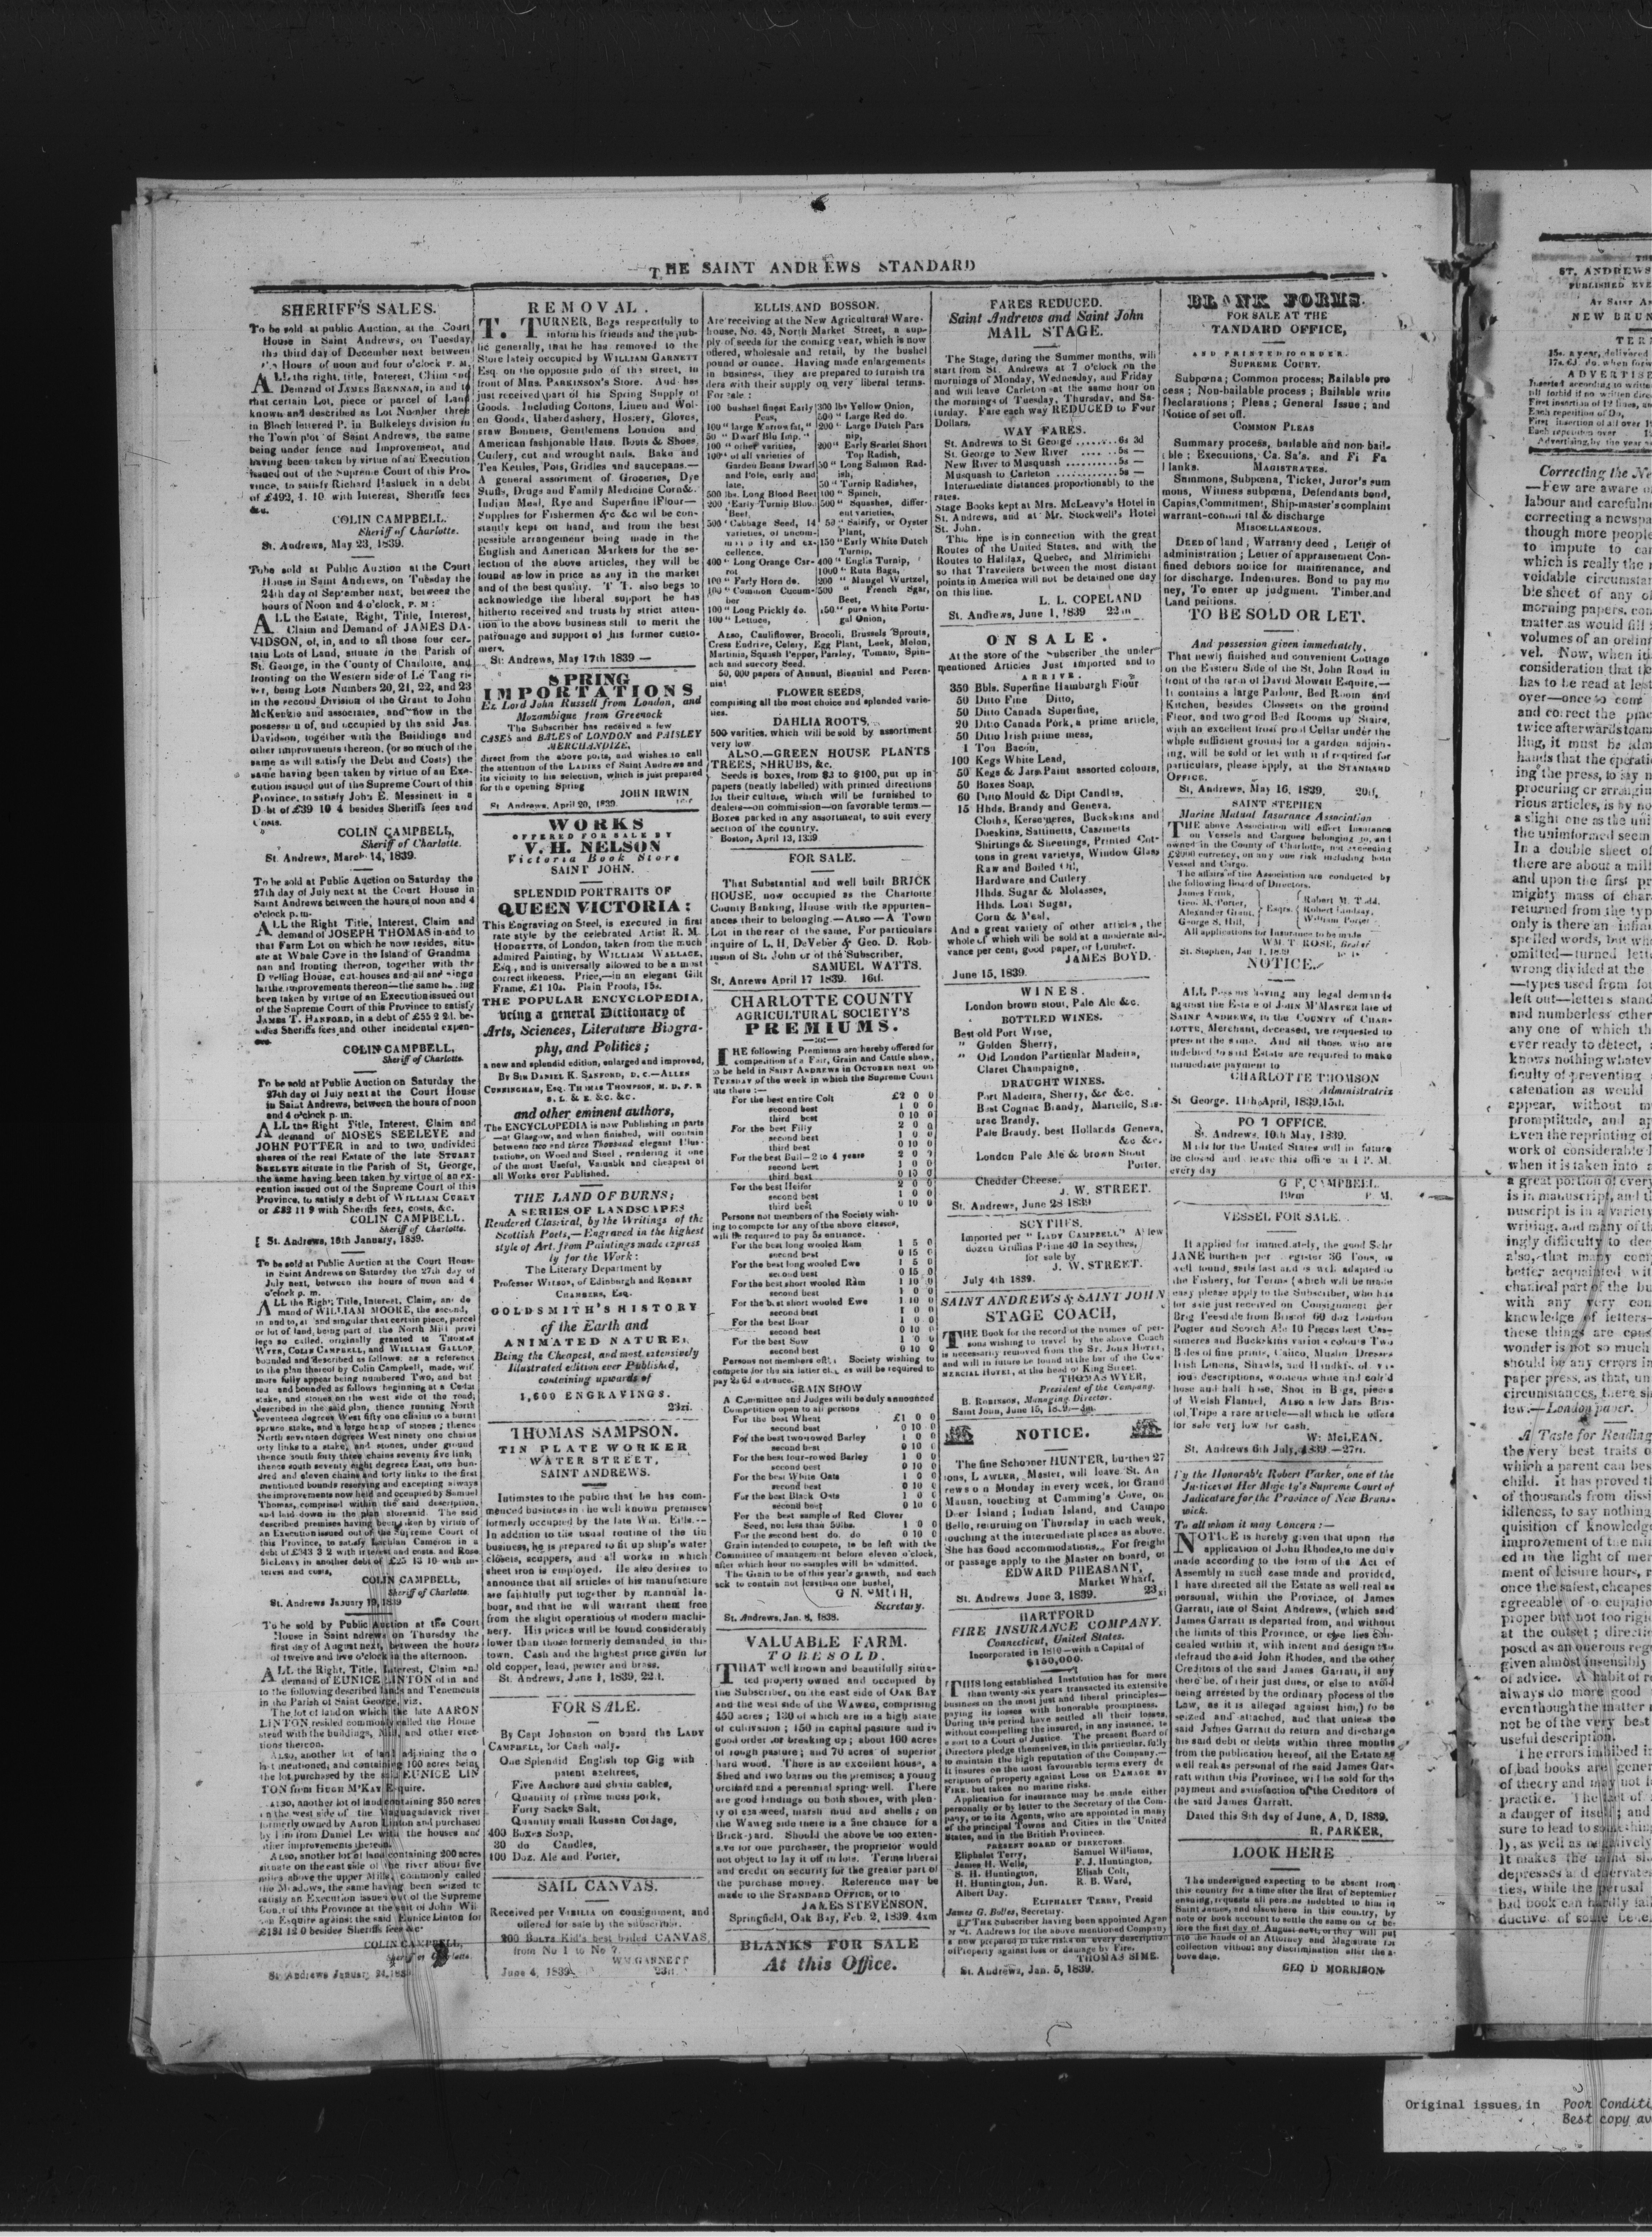 THE SAINT ANDREWS STANDARD
SHERIFF'S SALES.
To be sold at public Auction, at the Court
House in Saint Andrews, on Tuesday
the third day of December next between
Hours of noon and four o'clock P. M.
ALL the right, title, Interest, Claim and
Demand of JAMES BRENNAN, in and to
that certain Lot, piece or parcel of Land
known and described as Lot Number three
in Block lettered P. in Bulkeleys division in
the Town plot of Saint Andrews, the same
being under fence and Improvement, and
having been taken by virtue of an Execution
issued out of the Supreme Court of this Pro-
vince, to satisfy Richard Hasluck in a debt
of £492, 4. 10 with Interest, Sheriffs fees
&c.
COLIN CAMPBELL.
Sheriff of Charlotte.
St. Andrews, May 23, 1839.
To be sold at Public Auction at the Court
House in Saint Andrews, on Tuesday the
24th day of September next, between the
hours of Noon and 4 o'clock, P. M:
ALL the Estate, Right, Title, Interest,
Claim and Demand of JAMES DA-
VIDSON, of, in, and to all those four cer-
tain Lots of Land, situate in the Parish of
St. George, in the County of Charlotte, and
fronting on the Western side of Le Tang ri-
ver, being Lots Numbers 20, 21, 22, and 23
in the second Division of the Grant to John
McKenzie and associates, and now in the
possession of, and occupied by the said Jas.
Davidson, together with the Buildings and
other improvements thereon, (or so much of the
same as will satisfy the Debt and Costs) the
same having been taken by virtue of an Exe-
cution issued out of the Supreme Court of this
Province, to satisfy John E. Messinett in a
Debt of £39 10 4 besides Sheriffs fees and
Costs.
COLIN CAMPBELL,
Sheriff of Charlotte.
St. Andrews, March 14, 1839.
To be sold at Public Auction on Saturday the
27th day of July next at the Court House in
Saint Andrews between the hours of noon and 4
o'clock p. m.
ALL the Right Title, Interest, Claim and
demand of JOSEPH THOMAS in and to
that Farm Lot on which he now resides, situ-
ate at Whale Cove in the Island of Grandma
nan and fronting thereon, together with the
Dwelling House, out houses and all and singu
lar the improvements thereon—the same having
been taken by virtue of an Execution issued out
of the Supreme Court of this Province to satisfy
JAMES T. HANFORD, in a debt of £55 2 2d. be-
sides Sheriffs fees and other incidental expen-
ces.
COLIN CAMPBELL,
Sheriff of Charlotte.
To be sold at Public Auction on Saturday the
27th day of July next at the Court House
in Saint Andrews, between the hours of noon
and 4 o'clock p. m.
ALL the Right Title, Interest, Claim and
demand of MOSES SEELEYE and
JOHN POTTER in and to two undivided
shares of the real Estate of the late STUART
SEELEYE situate in the Parish of St, George,
the same having been taken by virtue of an ex-
ecution issued out of the Supreme Court of this
Province, to satisfy a debt of WILLIAM CURRY
or £83 11 9 with Sheriffs fees, costs, &c.
COLIN CAMPBELL.
Sheriff of Charlotte.
St. Andrews, 18th January, 1839.
To be sold at Public Auction at the Court House
in Saint Andrews on Saturday the 27th day of
July next, between the hours of noon and 4
o'clock p. m.
ALL the Right Title, Interest, Claim, and de
mand of WILLIAM MOORE, the second,
in and to, all and singular that certain piece, parcel
or lot of land, being part of the North Mill privi
lege so called, originally granted to THOMAS
WYER, COLIN CAMPBELL, and WILLIAM GALLOP,
bounded and described as follows: as a reference
to the plan thereof by Colin Campbell, made, will
more fully appear being numbered Two, and but
ted and bounded as follows beginning at a Cedar
stake, and stones on the west side of the road,
described in the said plan, thence running North
seventeen degrees West fifty one chains to a burnt
spruce stake, and a large heap of stones; thence
North seventeen degrees West ninety one chains
orty links to a stake, and stones, under ground
thence south forty three chains seventy five link;
thence south seventy eight degrees East, one hun-
dred and eleven chains and forty links to the first
mentioned bounds reserving and excepting always
the improvements now held and occupied by Samuel
Thomas, comprised within the said description,
and laid down in the plan aforesaid. The said
described premises having been taken by virtue of
an Execution issued out of the Supreme Court of
this Province, to satisfy Lachlan Cameron in a
debt of £343 3 2 with interest and costs, and Rose
McLean in another debt of £25 13 10 with in-
terest and costs,
COLIN CAMPBELL,
Sheriff of Charlotte.
St. Andrews January 19, 1839
To be sold by Public Auction at the Court
House in Saint ndrews on Thursday the
first day of August next, between the hours
of twelve and five o'clock in the afternoon.
ALL the Right, Title, Interest, Claim and
demand of EUNICE LINTON of in and
to the following described lands and Tenements
in the Parish of Saint George, viz.
The lot of land on which the late AARON
LINTON resided commonly called the Home
stead with the buildings, Mill, and other erec-
tions thereon.
ALSO, another lot of land adjoining the o
last mentioned, and containing 100 acres being
the lot purchased by the said EUNICE LIN
TON from HUGH M'KAY Esquire.
ALSO, another lot of land containing 350 acres
in the west side of the Magaguadavick river
formerly owned by Aaron Linton and purchased
by him from Daniel Lee with the houses and
other improvements thereon.
ALSO, another lot of land containing 200 acres
situate on the east side of the river about five
miles above the upper Mills, commonly called
the Meadows, the same having been seized to
satisfy an Execution issued out of the Supreme
Court of this Province at the suit of John Wil
son Esquire against the said Eunice Linton for
£131 12 0 besides Sheriffs fees &c.
COLIN CAMPBELL,
Sheriff of Charlotte.
St Andrews January 24, 1839
REMOVAL.
T. TURNER, Begs respectfully to
inform his friends and the pub-
lic generally, that he has removed to the
Store lately occupied by WILLIAM GARNETT
Esq. on the opposite side of the street, in
front of MRS. PARKINSON'S Store. And has
just received part of his Spring Supply of
Goods. Including Cottons, Linen and Wol-
en Goods, Haberdashery, Hosiery, Gloves,
straw Bonnets, Gentlemens London and
American fashionable Hats. Boots & Shoes,
Cutlery, cut and wrought nails. Bake and
Tea Kettles, Pots, Gridles and saucepans.—
A general assortment of Groceries, Dye
Stuffs, Drugs and Family Medicine Corn &c.
Indian Meal, Rye and Superfine Flour—
Supplies for Fishermen &c &c wil be con-
stantly kept on hand, and from the best
possible arrangement being made in the
English and American Markets for the se-
lection of the above articles, they will be
found as low in price as any in the market
and of the best quality. T T. also begs to
acknowledge the liberal support he has
hitherto received and trusts by strict atten-
tion to the above business still to merit the
patronage and support of his former custo-
mers.
St. Andrews, May 17th 1839 —
SPRING
IMPORTATIONS
Ex Lord John Russell from London, and
Mozambique from Greenock
The Subscriber has received a few
CASES and BALES of LONDON and PAISLEY
MERCHANDIZE,
direct from the above ports, and wishes to call
the attention of the LADIES of Saint Andrews and
its vicinity to his selection, which is just prepared
for the opening Spring
JOHN IRWIN
St. Andrews, April 20, 1839.
WORKS
OFFERED FOR SALE BY
V. H. NELSON
Victoria Book Store
SAINT JOHN.
SPLENDID PORTRAITS OF
QUEEN VICTORIA:
This Engraving on Steel, is executed in first
rate style by the celebrated Artist R. M.
HODGETTS, of London, taken from the much
admired Painting, by WILLIAM WALLACE,
Esq., and is universally allowed to be a most
correct likeness. Price,—in an elegant Gilt
Frame, £1 10s. Plain Proofs, 15s.
THE POPULAR ENCYCLOPEDIA,
being a general Dictionary of
Arts, Sciences, Literature Biogra-
phy, and Politics;
a new and splendid edition, enlarged and improved,
BY SIR DANIEL K. SANFORD, D. C.—ALLEN
CUNNINGHAM, ESQ. THOMAS THOMPSON, M. D. F. R
S. L. & E. &C. &C.
and other eminent authors,
The ENCYCLOPEDIA is now Publishing in parts
—at Glasgow, and when finished, will contain
between two and three Thousand elegant Illus-
trations, on Wood and Steel, rendering it one
of the most Useful, Valuable and cheapest of
all Works ever Published.
THE LAND OF BURNS;
A SERIES OF LANDSCAPES
Rendered Classical, by the Writings of the
Scottish Poets,—Engraved in the highest
style of Art, from Paintings made express
ly for the Work:
The Literary Department by
Professor WILSON, of Edinburgh and ROBERT
CHAMBERS, ESQ.
GOLDSMITH'S HISTORY
of the Earth and
ANIMATED NATURE;
Being the Cheapest, and most extensively
Illustrated edition ever Published,
containing upwards of
1,600 ENGRAVINGS.
23xi.
THOMAS SAMPSON.
TIN PLATE WORKER
WATER STREET,
SAINT ANDREWS.
Intimates to the public that he has com-
menced business in he well known premises
formerly occupied by the late Wm. Eills.—
In addition to the usual routine of the tin
business, he is prepared to fit up ship's water
closets, scuppers, and all works in which
sheet iron is employed. He also desires to
announce that all articles of his manufacture
are faithfully put together by mannual la-
bour, and that he will warrant them free
from the slight operations of modern machi-
nery. His prices will be found considerably
lower than those formerly demanded in this
town. Cash and the highest price given for
old copper, lead, pewter and brass.
St. Andrews, June 1, 1839, 22.t.
FOR SALE.
By Capt Johnston on board the LADY
CAMPBELL, for Cash only.
One Splendid English top Gig with
patent axeltrees,
Five Anchors and chain cables,
Quantity of prime mess pork,
Forty Sacks Salt,
Quantity small Russan Cordage,
400 Boxes Soap,
30 do Candles,
100 Doz. Ale and Porter,
SAIL CANVAS.
Received per VIBILIA on consignment, and
offered for sale by the subscriber.
200 BOLTS Kid's best boiled CANVAS,
from No 1 to No 7.
WM GARNETT
June 4, 1839
ELLIS AND BOSSON.
Are receiving at the New Agricultural Ware-
house, No. 45, North Market Street, a sup-
ply of seeds for the coming year, which is now
offered, wholesale and retail, by the bushel
pound or ounce. Having made enlargements
in business, They are prepared to furnish tra
ders with their supply on very liberal terms.
For sale:
100 bushsel finest Early
Peas,
100 " large Marrowfat, "
50 " Dwarf Blu Imp. "
100 " other varities,
100 " of all varieties of
Garden Beans Dwarf
and Pole, early and
late.
500 lbs. Long Blood Beet
200 " Early Turnip Blood
Beet,
500 " Cabbage Seed, 14
varieties, of uncom-
and ex-
cellence.
400 " Long Orange Car-
rot
100 " Early Horn do.
100 " Common Cucum-
ber
100 " Long Prickly do.
100 " Lettuce,
300 lbs Yellow Onion,
500 " Large Red do.
200 " Large Dutch Pars
nip,
200 " Early Scarlet Short
Top Radish,
50 " Long Salmon Rad-
ish,
50 " Turnip Radishes,
100 " Spinch,
500 " Squashes, differ-
ent varieties,
50 " Salsify, or Oyster
Plant,
150 " Early White Dutch
Turnip,
400 " Englis Turnip,
1000 " Ruta Baga,
200 " Mangel Wurtzel,
500 " French Sgar,
Beet,
150 " pure White Portu-
gal Onion,
ALSO, Cauliflower, Brocoli, Brussels Sprouts,
Cress Endrive, Celery, Egg Plant, Leek, Melon,
Martinia, Squash Pepper, Parsley, Tomato, Spin-
ach and succory Seed.
50, 000 papers of Annual, Biennial and Peren-
nial
FLOWER SEEDS,
comprising all the most choice and splended varie-
ties.
DAHLIA ROOTS,
500 varities, which will be sold by assortment
very low
ALSO.—GREEN HOUSE PLANTS
TREES, SHRUBS, &c.
Seeds is boxes, from $3 to $100, put up in
papers (neatly labelled) with printed directions
for their culture, which will be furnished to
dealers—on commission—on favorable terms.—
Boxes packed in any assortment, to suit every
section of the country.
Boston, April 13, 1839
FOR SALE.
That Substantial and well built BRICK
HOUSE, now occupied as the Charlotte
County Banking, House with the appurten-
ances their to belonging.—ALSO—A Town
Lot in the rear of the same. For particulars
inquire of L. H. DeVeber & Geo. D. Rob-
inson of St. John or of the Subscriber,
SAMUEL WATTS.
St, Anrews April 17 1839. 16tf.
CHARLOTTE COUNTY
AGRICULTURAL SOCIETY'S
PREMIUMS.
THE following Premiums are hereby offered for
competition at a Fair, Grain and Cattle show,
to be held in SAINT ANDREWS in OCTOBER next on
TUESDAY of the week in which the Supreme Court
sits there:—
For the best entire Colt £2 0 0
second best 1 0 0
third best 0 10 0
For the best Filly 2 0 0
second best 1 0 0
third best 0 10 0
For the best Bull—2 to 4 years 2 0 0
second best 1 0 0
third best 0 10 0
For the best Heifer 2 0 0
second best 1 0 0
third best 0 10 0
Persons not members of the Society wish-
ing to compete for any of the above classes,
will be required to pay 5s entrance.
For the best long wooled Ram 1 5 0
second best 0 15 0
For the best long wooled Ewe 1 5 0
second best 0 15 0
For the best short wooled Ram 1 10 0
second best 1 0 0
For the best short wooled Ewe 1 10 0
second best 1 0 0
For the best Boar 1 0 0
second best 0 10 0
For the best Sow 1 0 0
second best 0 10 0
Persons not members of the Society wishing to
compete for the six latter cl. as will be required to
pay 2s 6d entrance.
GRAIN SHOW
A Committee and Judges will be duly announced
Competition open to all persons
For the best Wheat £1 0 0
second best 0 10 0
For the best two-rowed Barley 1 0 0
second best 0 10 0
For the best four-rowed Barley 1 0 0
second best 0 10 0
For the best White Oats 1 0 0
second best 0 10 0
For the best Black Oats 1 0 0
second best 0 10 0
For the best sample of Red Clover
Seed, not less than 50lbs. 1 0 0
For the second best do. do 0 10 0
Grain intended to compete, to be left with the
Committee of management before eleven o'clock,
after which hour no samples will be admitted.
The Grain to be of this year's growth, and each
sck to contain not less than one bushel,
G N. SMITH,
Secretary.
St. Andrews, Jan. 8, 1838.
VALUABLE FARM.
TO BE SOLD.
THAT well known and beautifully situa-
ted property owned and occupied by
the Subscriber, on the east side of OAK BAY
and the west side of the WAWEG, comprising
450 acres; 130 of which are in a high state
of cultivation; 150 in capital pasture and in
good order for breaking up; about 100 acres
of rough pasture; and 70 acres of superior
hard wood. There is an excellent house, a
Shed and two barns on the premises; a young
orchard and a perennial spring well. There
are good landings on both shores, with plen-
ty of sea weed, marsh mud and shells; on
the Waweg side there is a fine chance for a
Brick-yard. Should the above be too exten-
sive for one purchaser, the proprietor would
not object to lay it off in lots. Terms liberal
and credit on security for the greater part of
the purchase money. Reference may be
made to the STANDARD OFFICE, or to
JAMES STEVENSON.
Springfield, Oak Bay, Feb. 2, 1839. 4xm
BLANKS FOR SALE
At this Office.
FARES REDUCED.
Saint Andrews and Saint John
MAIL STAGE.
The Stage, during the Summer months, will
start from St. Andrews at 7 o'clock on the
mornings of Monday, Wednesday, and Friday
and will leave Carleton at the same hour on
the mornings of Tuesday, Thursday, and Sa-
turday. Fare each way REDUCED to Four
Dollars,
WAY FARES.
St. Andrews to St George ....... 6s 3d
St. George to New River .... .. 5s —
New River to Musquash .......... 5s —
Musquash to Carleton ............ 5s —
Intermediate distances proportionably to the
rates.
Stage Books kept at Mrs. McLeavy's Hotel in
St. Andrews, and at Mr. Stockwell's Hotel
St. John.
This line is in connection with the great
Routes of the United States, and with the
Routes to Halifax, Quebec, and Mirimichi
so that Travellers between the most distant
points in America will not be detained one day
on this line.
L. L. COPELAND
St. Andrews, June 1, 1839 22m
ON SALE.
At the store of the Subscriber the under
mentioned Articles Just imported and to
ARRIVE.
350 Bbls. Superfine Hamburgh Flour
50 Ditto Fine Ditto,
50 Ditto Canada Superfine,
20 Ditto Canada Pork, a prime article,
50 Ditto Irish prime mess,
1 Ton Bacon,
100 Kegs White Lead,
50 Kegs & Jars Paint assorted colours,
50 Boxes Soap,
60 Ditto Mould & Dipt Candles,
15 Hhds. Brandy and Geneva.
Cloths, Kerseymeres, Buckskins and
Doeskins, Sattinetts, Cassinetts
Shirtings & Sheetings, Printed Cot-
tons in great varietys, Window Glass
Raw and Boiled Oil,
Hardware and Cutlery.
Hhds. Sugar & Molasses,
Hhds. Loaf Sugar,
Corn & Meal,
And a great variety of other articles, the
whole of which will be sold at a moderate ad-
vance per cent, good paper, or Lumber.
JAMES BOYD.
June 15, 1839.
WINES.
London brown stout, Pale Ale &c.
BOTTLED WINES.
Best old Port Wine,
" Golden Sherry,
" Old London Particular Madeira,
Claret Champaigne,
DRAUGHT WINES.
Port Madeira, Sherry, &c &c.
Best Cognac Brandy, Martelle, Sis-
arac Brandy,
Pale Brandy, best Hollards Geneva,
&c &c.
London Pale Ale & brown Stout
Porter.
Chedder Cheese.
J. W. STREET.
St. Andrews, June 28 1839
SCYTHES.
Imported per "LADY CAMPBELL" A few
dozen Griffins Prime 40 In Scythes,
for sale by
J. W. STREET.
July 4th 1839.
SAINT ANDREWS & SAINT JOHN
STAGE COACH,
THE Book for the record of the names of per-
sons wishing to travel by the above Coach
is necessarily removed from the ST. JOHN HOTEL,
and will in future be found at the bar of the COM-
MERCIAL HOTEL, at the head of King Street.
THOMAS WYER,
President of the Company.
B. ROBINSON, Managing Director.
Saint John, June 15, 1839.—4m.
NOTICE.
The fine Schooner HUNTER, burthen 27
tons, LAWLER, Master, will leave St. An
rews on Monday in every week, for Grand
Manan, touching at Cumming's Cove, on
Deer Island; Indian Island, and Campo
Bello, returning on Thursday in each week,
touching at the intermediate places as above.
She has Good accommodations. For freight
or passage apply to the Master on board, or
EDWARD PHEASANT,
Market Wharf,
St. Andrews June 3, 1839. 23xi
HARTFORD
FIRE INSURANCE COMPANY.
Connecticut, United States.
Incorporated in 1810—with a Capital of
$150,000.
THIS long established Institution has for more
than twenty six years transacted its extensive
business on the most just and liberal principles—
paying its losses with honorable promptness.
During this period have settled all their losses,
without compelling the insured, in any instance, to
resort to a Court of Justice. The present Board of
Directors pledge themselves, in this particular, fully
to maintain the high reputation of the Company.—
It insures on the most favourable terms every de
scription of property against LOSS OR DAMAGE BY
FIRE, but takes no marine risks.
Application for insurance may be made either
personally or by letter to the Secretary of the Com-
pany, or to its Agents, who are appointed in many
of the principal Towns and Cities in the United
States, and in the British Provinces.
PRESENT BOARD OF DIRECTORS.
Eliphalet Terry, Samuel Williams,
James H. Wells, F. J. Huntington,
S. H. Huntington, Elisah Colt,
H. Huntington, Jun. R. B. Ward,
Albert Day.
ELIPHALET TERRY, Presid
James G. Bolles, Secretary.
THE Subscriber having been appointed Agen
St. Andrews for the above mentioned Company
s now prepared to take risks on every description
of Property against loss or damage by Fire.
THOMAS SIME.
St. Andrews, Jan. 5, 1839.
BLANK FORMS.
FOR SALE AT THE
TANDARD OFFICE,
AND PRINTED TO ORDER.
SUPREME COURT.
Subpœna; Common process; Bailable pro
cess; Non-bailable process; Bailable writs
Declarations; Pleas; General Issue; and
Notice of set off.
COMMON PLEAS
Summary process, bailable and non bail-
able; Executions, Ca. Sa's. and Fi Fa
Blanks.
MAGISTRATES.
Summons, Subpœna, Ticket, Juror's sum
mons, Witness subpœna, Defendants bond,
Capias, Commitment, Ship-master's complaint
warrant-commital & discharge
MISCELLANEOUS.
DEED of land, Warranty deed, Letter of
administration; Letter of appraisement Con-
fined debtors notice for maintenance, and
for discharge. Indentures. Bond to pay mo
ney, To enter up judgment. Timber and
Land petitions.
TO BE SOLD OR LET.
And possession given immediately,
That newly finished and convenient Cottage
on the Eastern Side of the St. John Road in
front of the farm of David Mowatt Esquire.—
It contains a large Parlour, Bed Room and
Kitchen, besides Clossets on the ground
Floor, and two good Bed Rooms up Stairs,
with an excellent frost proof Cellar under the
whole sufficient ground for a garden adjoin-
ing, will be sold or let with it if required for
particulars, please apply, at the STANDARD
OFFICE.
St, Andrews, May 16, 1839, 20tf,
SAINT STEPHEN
Marine Mutual Insurance Association
THE above Association will effect Insurance
on Vessels and Cargoes belonging to, and
owned in the County of Charlotte, not exceeding
£2000 currency, on any one risk including both
Vessel and Cargo.
The affairs of the Association are conducted by
the following Board of Directors.
James Frink,
Geo. M. Porter,
Alexander Grant,
George S. Hill,
Esqrs.
Robert M. Todd,
Robert Lindsay,
William Porter
All applications for Insurance to be made
WM. T ROSE, Broker
St. Stephen, Jan 1, 1839
NOTICE.
ALL Persons having any legal demands
against the Estate of JOHN M'MASTER late of
SAINT ANDREWS, in the COUNTY of CHAR-
LOTTE, Merchant, deceased, are requested to
present the same. And all those who are
indebted to said Estate are required to make
immediate payment to
CHARLOTTE THOMSON
Administratrix
St George. 11th April, 1839. 15.t.
PO T OFFICE.
St. Andrews, 10th May, 1839.
Mails for the United States will in future
be closed and leave this office at 1 P. M.
every day
G F, CAMPBELL.
19tm P. M.
VESSEL FOR SALE.
If applied for immediately, the good Schr
JANE burthen per register 36 Tons, is
well found, sails fast and is well adapted to
the Fishery, for Terms (which will be made
easy please apply to the Subscriber, who has
for sale just received on Consignment per
Brig Teesdale from Bristol 60 doz London
Porter and Scotch Ale 10 Pieces best Cas-
simeres and Buckskins various colours Two
Bales of fine prints, Calico, Muslin Dresses
Irish Linens, Shawls, and Handkfs. of va-
rious descriptions, womens white and col'rd
hose and half hose, Shot in Bags, pieces
of Welsh Flannel, ALSO a few Jars Bris-
tol, Tripe a rare article—all which he offers
for sale very low for cash.
W: McLEAN.
St. Andrews 6th July, 1839.—27.
By the Honorable Robert Parker, one of the
Justices of Her Maje ty's Supreme Court of
Judicature for the Province of New Bruns-
wick.
To all whom it may Concern:—
NOTICE is hereby given that upon the
application of John Rhodes, to me duly
made according to the form of the Act of
Assembly in such case made and provided,
I have directed all the Estate as well real as
personal, within the Province, of James
Garratt, late of Saint Andrews, (which said
James Garratt is departed from, and without
the limits of this Province, or else lies con-
cealed within it, with intent and design to
defraud the said John Rhodes, and the other
Creditors of the said James Garratt, if any
there be, of their just dues, or else to avoid
being arrested by the ordinary process of the
Law, as it is alleged against him,) to be
seized and attached, and that unless the
said James Garratt do return and discharge
his said debt or debts within three months
from the publication hereof, all the Estate as
well real as personal of the said James Gar-
ratt within this Province, will be sold for the
payment and satisfaction of the Creditors of
the said James Garratt.
Dated this 8th day of June, A, D, 1839.
R. PARKER,
LOOK HERE
The undersigned expecting to be absent from
this country for a time after the first of September
ensuing, requests all persons indebted to him in
Saint James, and elsewhere in this country, by
note or book account to settle the same on or be-
fore the first day of August next, or they will put
into the hands of an Attorney and Magistrate for
collection without any discrimination after the a-
bove date.
GEO D MORRISON
ST. ANDREWS
PUBLISHED EVE
At Saint An
NEW BRUN
TER
15s. a year, delivered
ADVERTISE
Inserted according to written
till forbid if no written direc
First insertion of 12 lines, and
Each repetition of Do,
First insertion of all over 1
Each repetition over
Advertising by the year
Correcting the Ne
—Few are aware o
labour and carefuln
correcting a newspa
though more people
to impute to car
which is really the r
voidable circumstan
ble sheet of any o
morning papers, con
matter as would fill
volumes of an ordin
vel. Now, when it
consideration that the
has to be read at least
over—once to com
and correct the pro
twice afterwards to am
ling, it must be adm
hands that the operatio
ing the press, to say n
procuring or arrangin
rious articles, is by no
a slight one as the uni
the uninformed seem
In a double sheet of
there are about a mill
and upon the first pr
mighty mass of char
returned from the typ
only is there an infini
spelled words, but wh
omitted—turned lett
wrong divided at the
—types used from fou
left out—letters stand
and numberless other
any one of which th
ever ready to detect, a
knows nothing whatev
ficulty of preventing
catenation as would
appear, without m
promptitude, and ap
Even the reprinting of
work of considerable l
when it is taken into a
a great portion of every
is in manuscript, and t
nuscript is in a variety
writing, and many of th
ingly difficulty to dec
also, that many com
better acquainted wit
chanical part of the bu
with any very con
knowledge of letters—
these things are cons
wonder is not so much
should be any errors in
paper press, as that, un
circumstances, there sh
few.—London paper.
A Taste for Reading
the very best traits o
which a parent can bes
child. It has proved t
of thousands from dissi
idleness, to say nothing
quisition of knowledge
improvement of the min
ed in the light of mer
ment of leisure hours, r
once the safest, cheapes
agreeable of o cupatio
proper but not too righ
at the outset; directin
posed as an onerous reg
given almost insensibly
of advice. A habit of re
always do more good
even though the matter r
not be of the very best
useful description.
The errors imbibed in
of bad books are gener
of theory and may not l
practice. The fact of
a danger of itself; and
sure to lead to something
ly, as well as negatively
It makes the mind sl
depresses and enervates
ties, while the perusal
bad book can hardly fail
ductive of some benef
Original issues in Poor Conditi
Best copy av